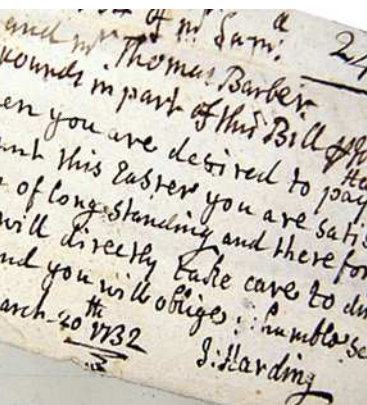 of mr Sam: a 24
and mr Thomas Barber
pounds in part of this Bill
en you are desired to pay
unt this Easter you are satis
of long standing and therefor
will directly take care to di
nd you will oblige yr humble Se
arch 20th 1732 J: Harding
3